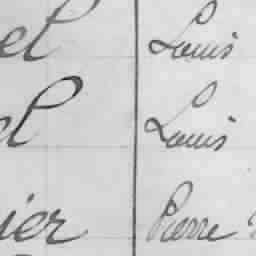 el Louis
el Louis
ier Pierre